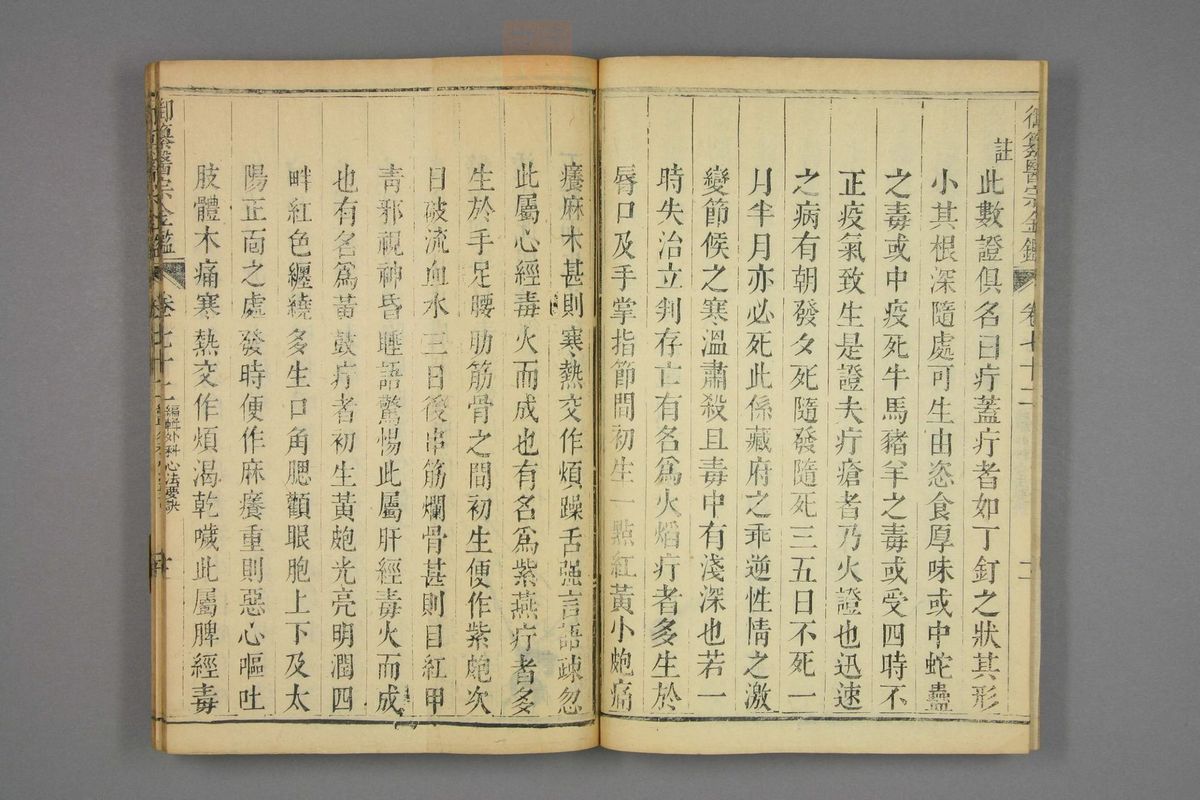 御纂醫宗金鑑 卷七十二
註
此數證俱名曰疔蓋疔者如丁釘之狀其形
小其根深隨處可生由恣食厚味或中蛇蠱
之毒或中疫死牛馬豬羊之毒或受四時不
正疫氣致生是證夫疔瘡者乃火證也迅速
之病有朝發夕死隨發隨死三五日不死一
月半月亦必死此係藏府之乖逆性情之激
變節候之寒溫肅殺且毒中有淺深也若一
時失治立判存亡有名爲火熖疔者多生於
脣口及手掌指節間初生一點紅黃小皰痛
癢麻木甚則寒熱交作煩躁舌强言語疎忽
此屬心經毒火而成也有名爲紫燕疔者多
生於手足腰肋筋骨之間初生便作紫皰次
日破流血水三日後串筋爛骨甚則目紅甲
靑邪視神昏睡語驚惕此屬肝經毒火而成
也有名爲黃鼓疔者初生黃皰光亮明潤四
畔紅色纏繞多生口角腮顴眼胞上下及太
陽正面之處發時便作麻癢重則惡心嘔吐
肢體木痛寒熱交作煩渴乾噦此屬脾經毒
御纂醫宗金鑑 卷七十二 編輯外科心法要訣